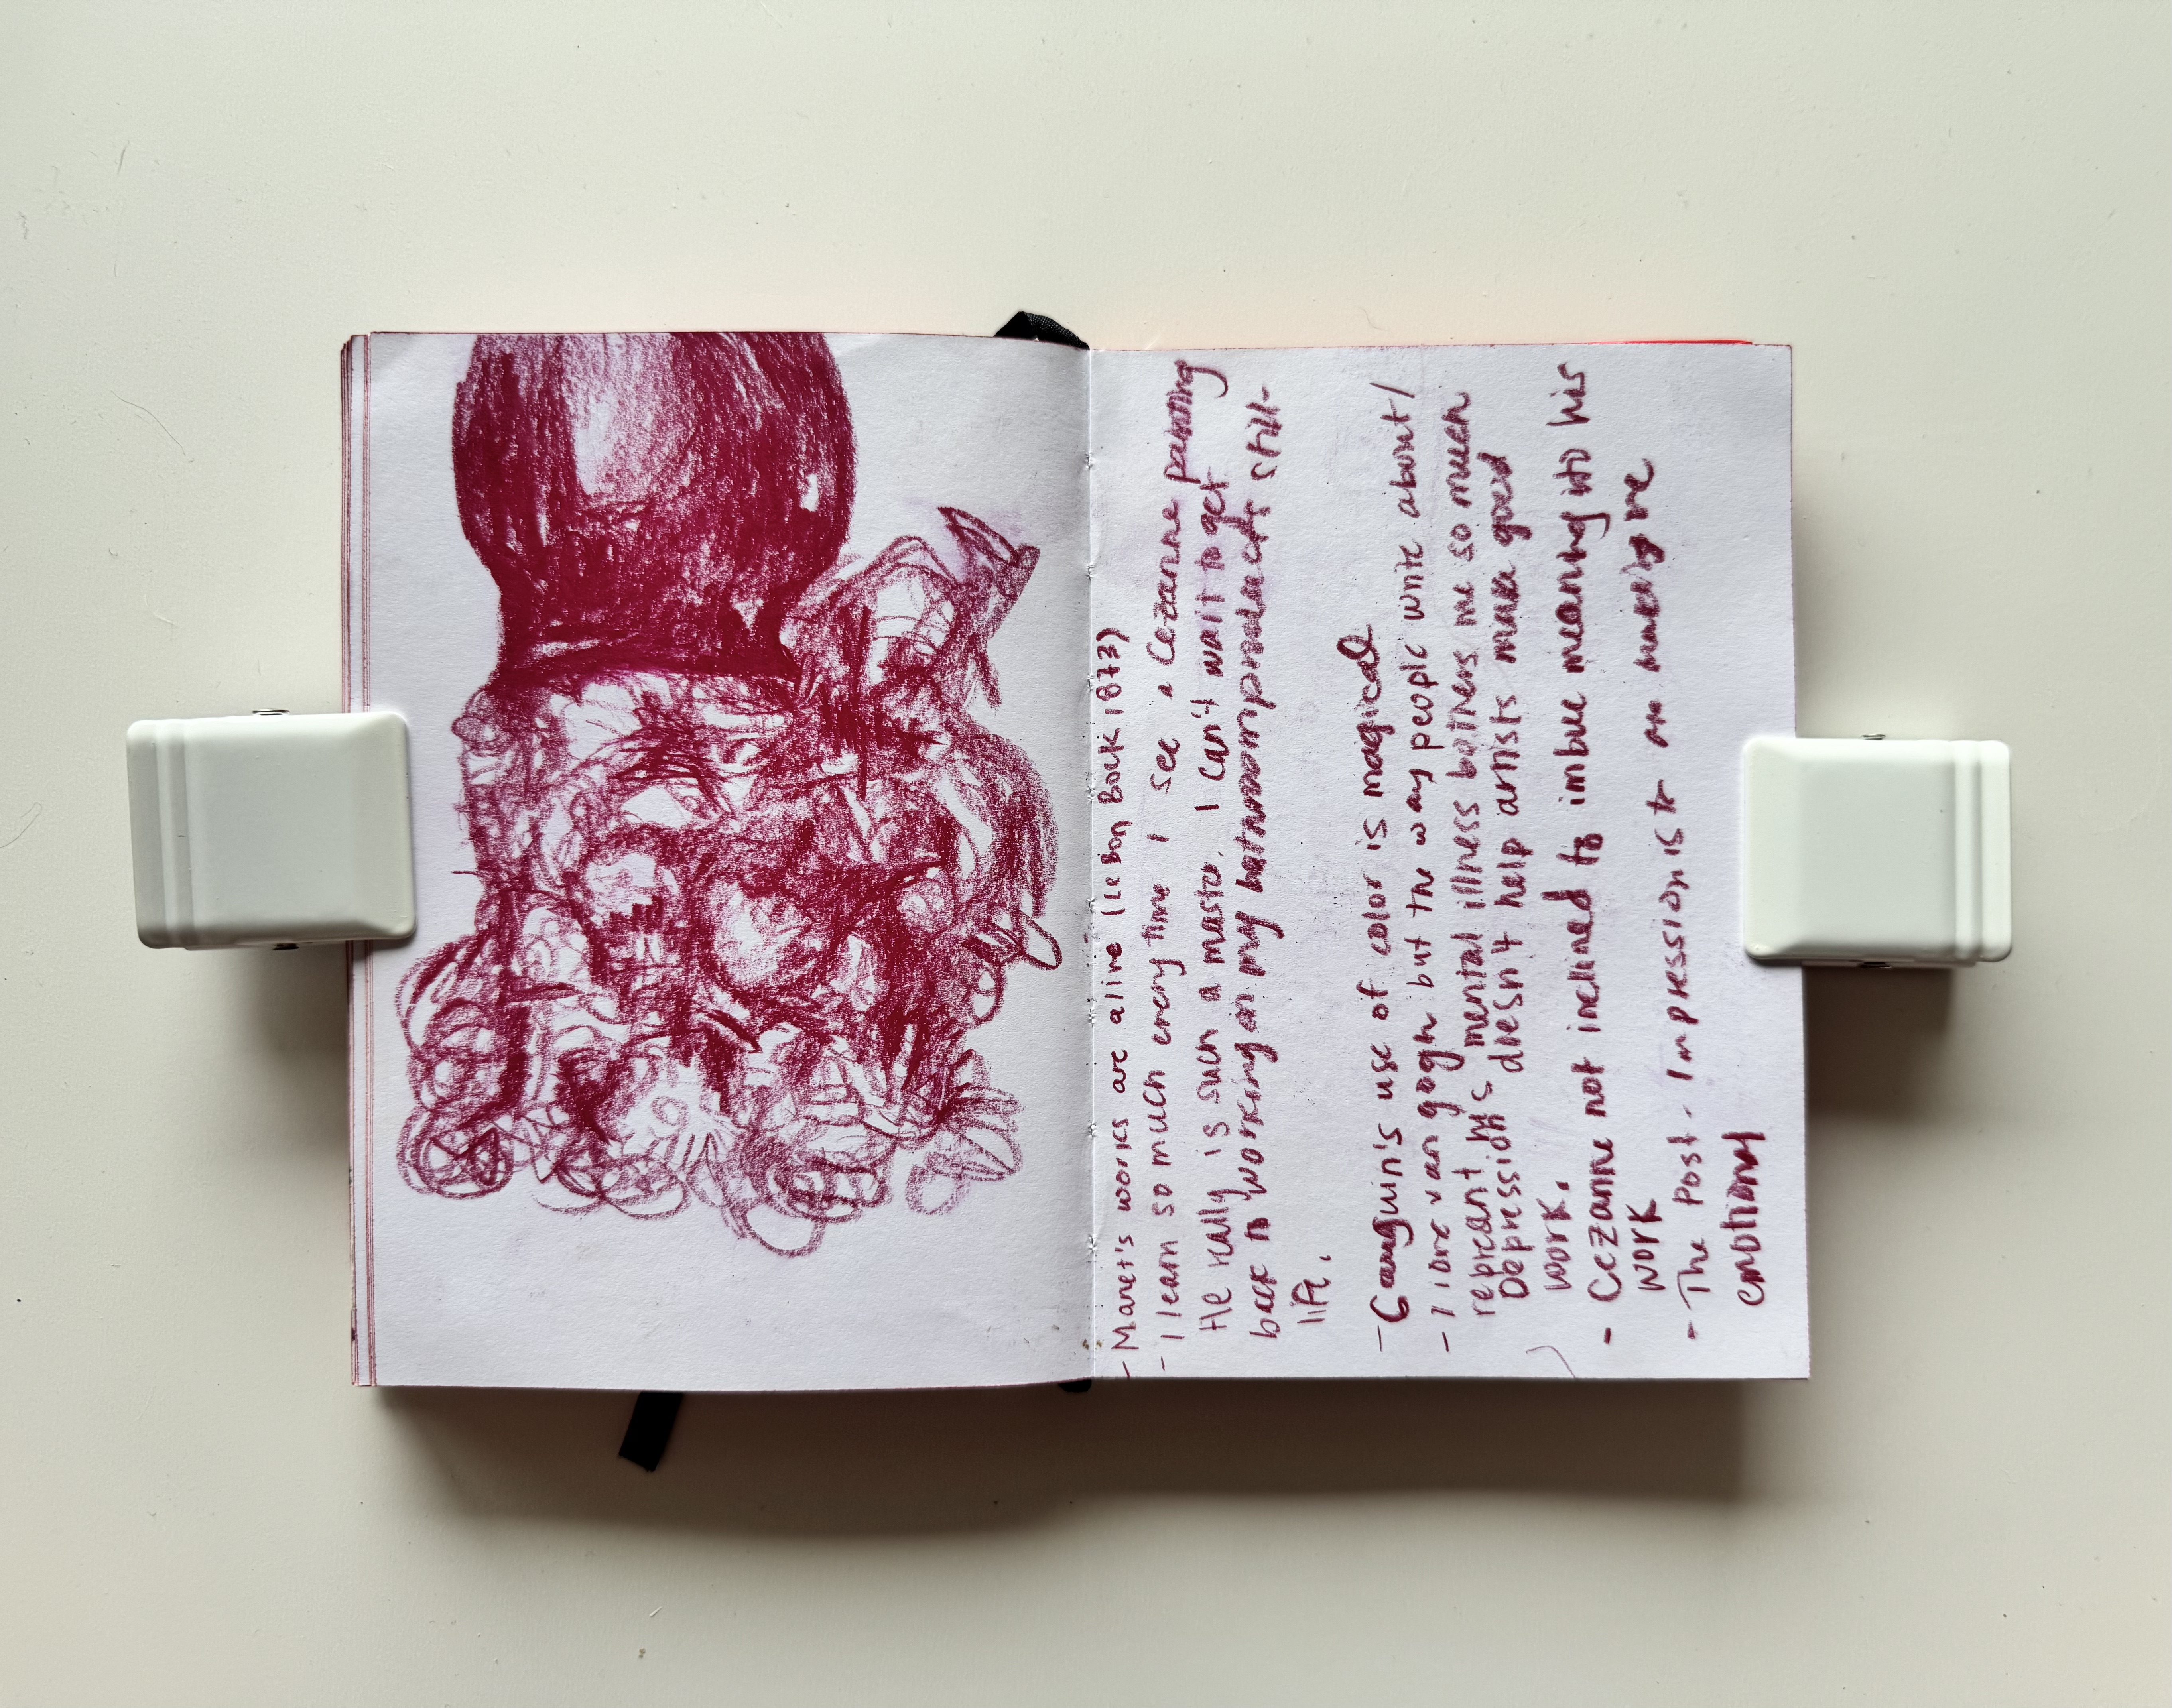 - Manet's works are alive (Le Bon Bock 1873)
- I learn so much every time I see a Cezanne painting
He really is such a master. I can't wait to get
back to working on my still-
life.
- Gauguin's use of color is magical
- I love van gogh but the way people write about/
represent his mental illness bothers me so much
Depression doesn't help artists make good
work.
- Cezanne not inclined to imbue meaning into his
work
- The Post-Impressionists
emotional